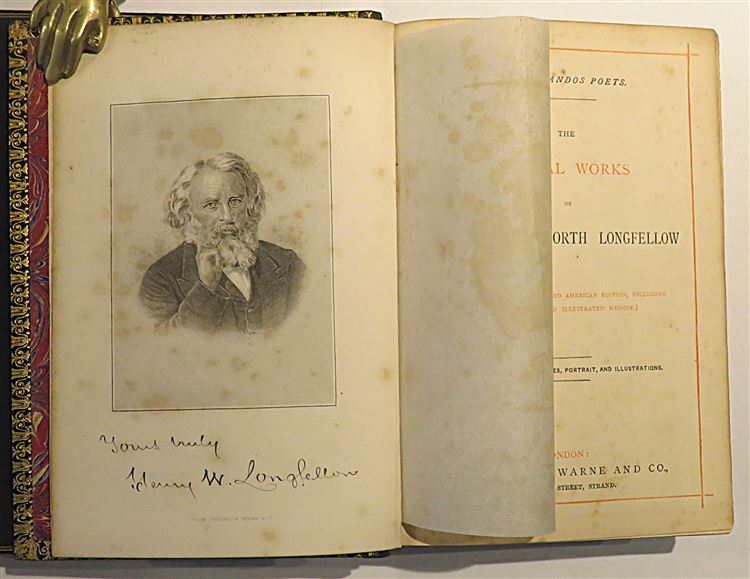 Yours truly
Henry W. Longfellow
ANDOS POETS.
THE
AL WORKS
OF
ORTH LONGFELLOW
ED AMERICAN EDITION, INCLUDING
D ILLUSTRATED MEMOIR.)
ES, PORTRAIT, AND ILLUSTRATIONS.
ONDON:
WARNE AND CO.,
STREET, STRAND.